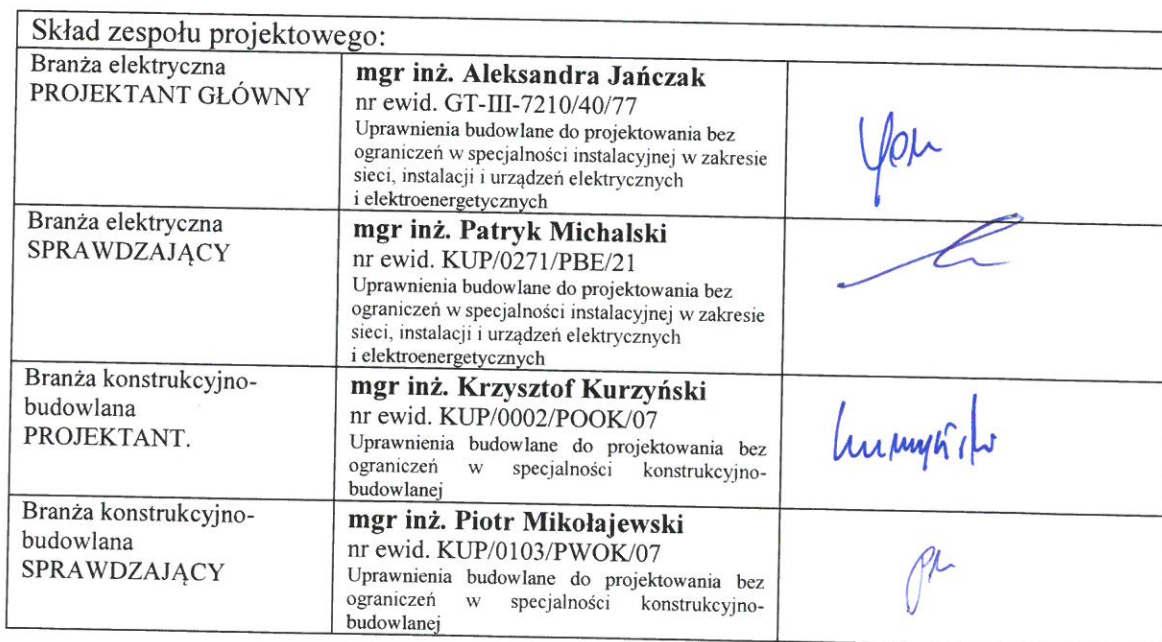 Skład zespołu projektowego:
Branża elektryczna
PROJEKTANT GŁÓWNY
mgr inż. Aleksandra Jańczak
nr ewid. GT-III-7210/40/77
Uprawnienia budowlane do projektowania bez
ograniczeń w specjalności instalacyjnej w zakresie
sieci, instalacji i urządzeń elektrycznych
i elektroenergetycznych
Branża elektryczna
SPRAWDZAJĄCY
mgr inż. Patryk Michalski
nr ewid. KUP/0271/PBE/21
Uprawnienia budowlane do projektowania bez
ograniczeń w specjalności instalacyjnej w zakresie
sieci, instalacji i urządzeń elektrycznych
i elektroenergetycznych
Branża konstrukcyjno-
budowlana
PROJEKTANT.
mgr inż. Krzysztof Kurzyński
nr ewid. KUP/0002/POOK/07
Uprawnienia budowlane do projektowania bez
ograniczeń w specjalności konstrukcyjno-
budowlanej
Branża konstrukcyjno-
budowlana
SPRAWDZAJĄCY
mgr inż. Piotr Mikołajewski
nr ewid. KUP/0103/PWOK/07
Uprawnienia budowlane do projektowania bez
ograniczeń w specjalności konstrukcyjno-
budowlanej